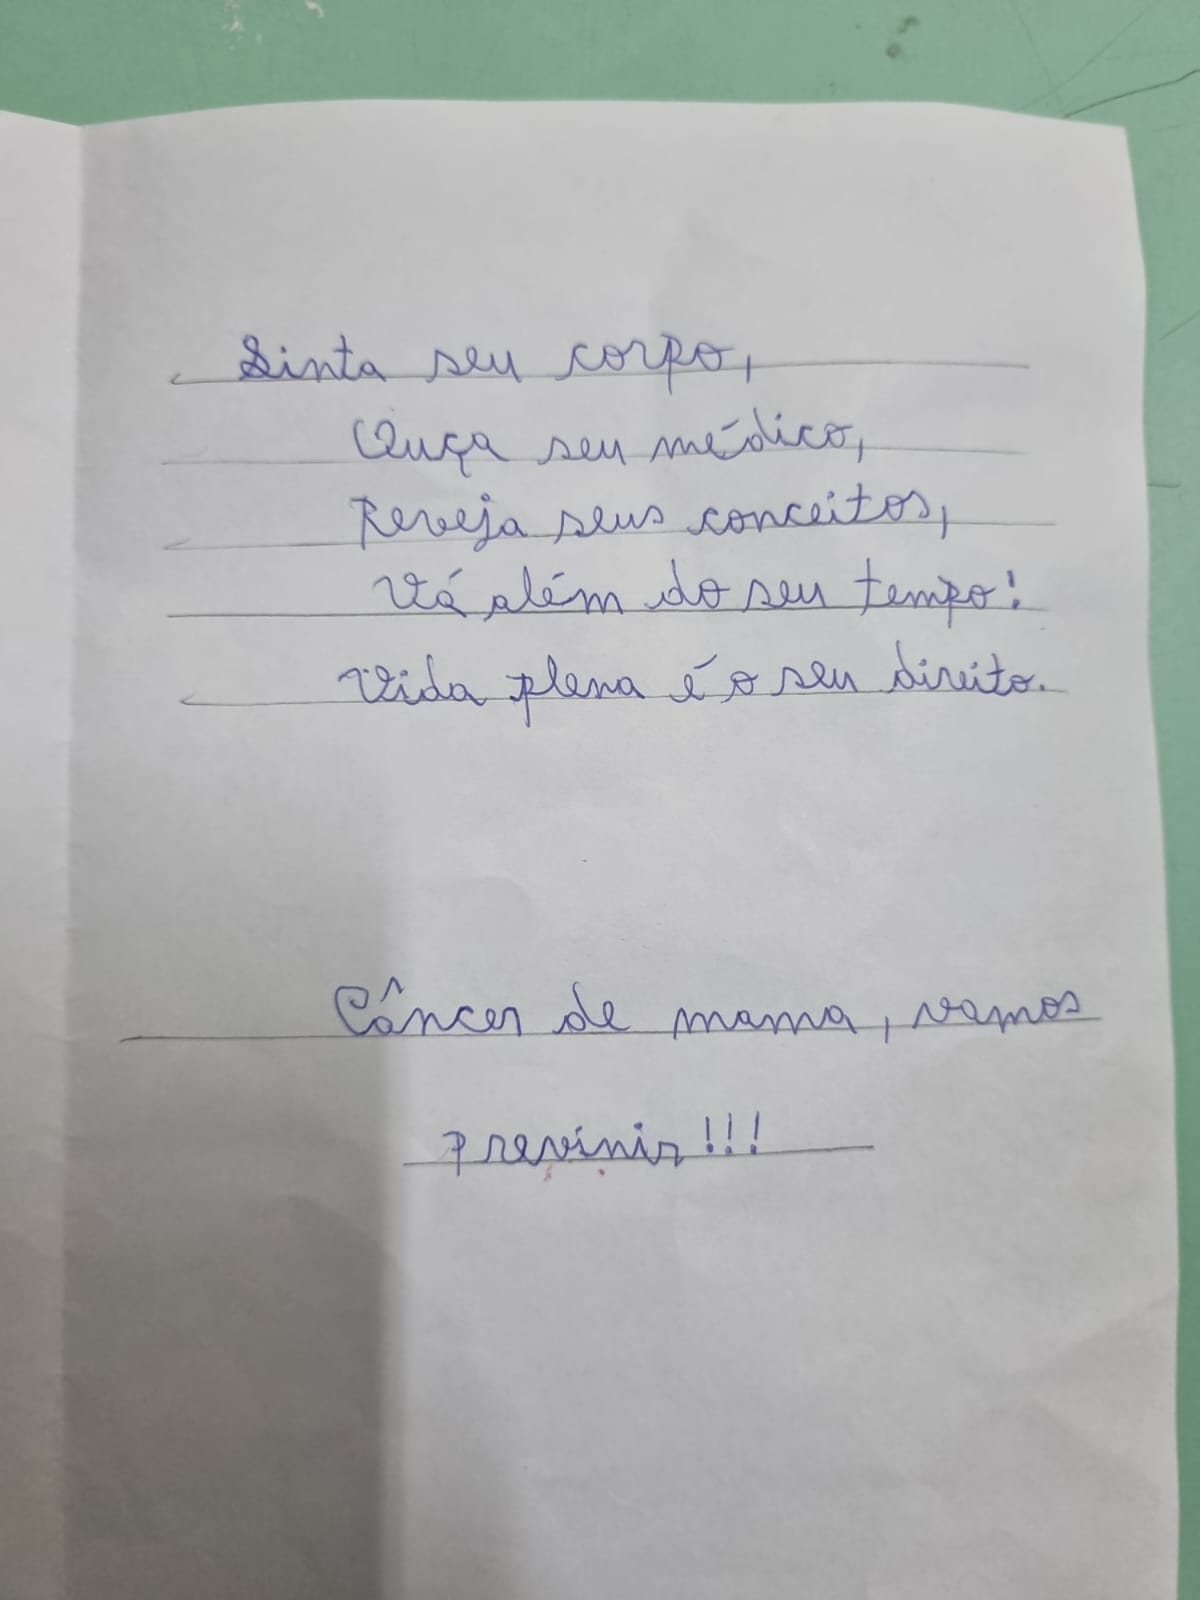 Sinta seu corpo,
Ouça seu médico,
Reveja seus conceitos,
Vá além do seu tempo!
Vida plena é o seu direito.
Câncer de mama, vamos
prevenir!!!